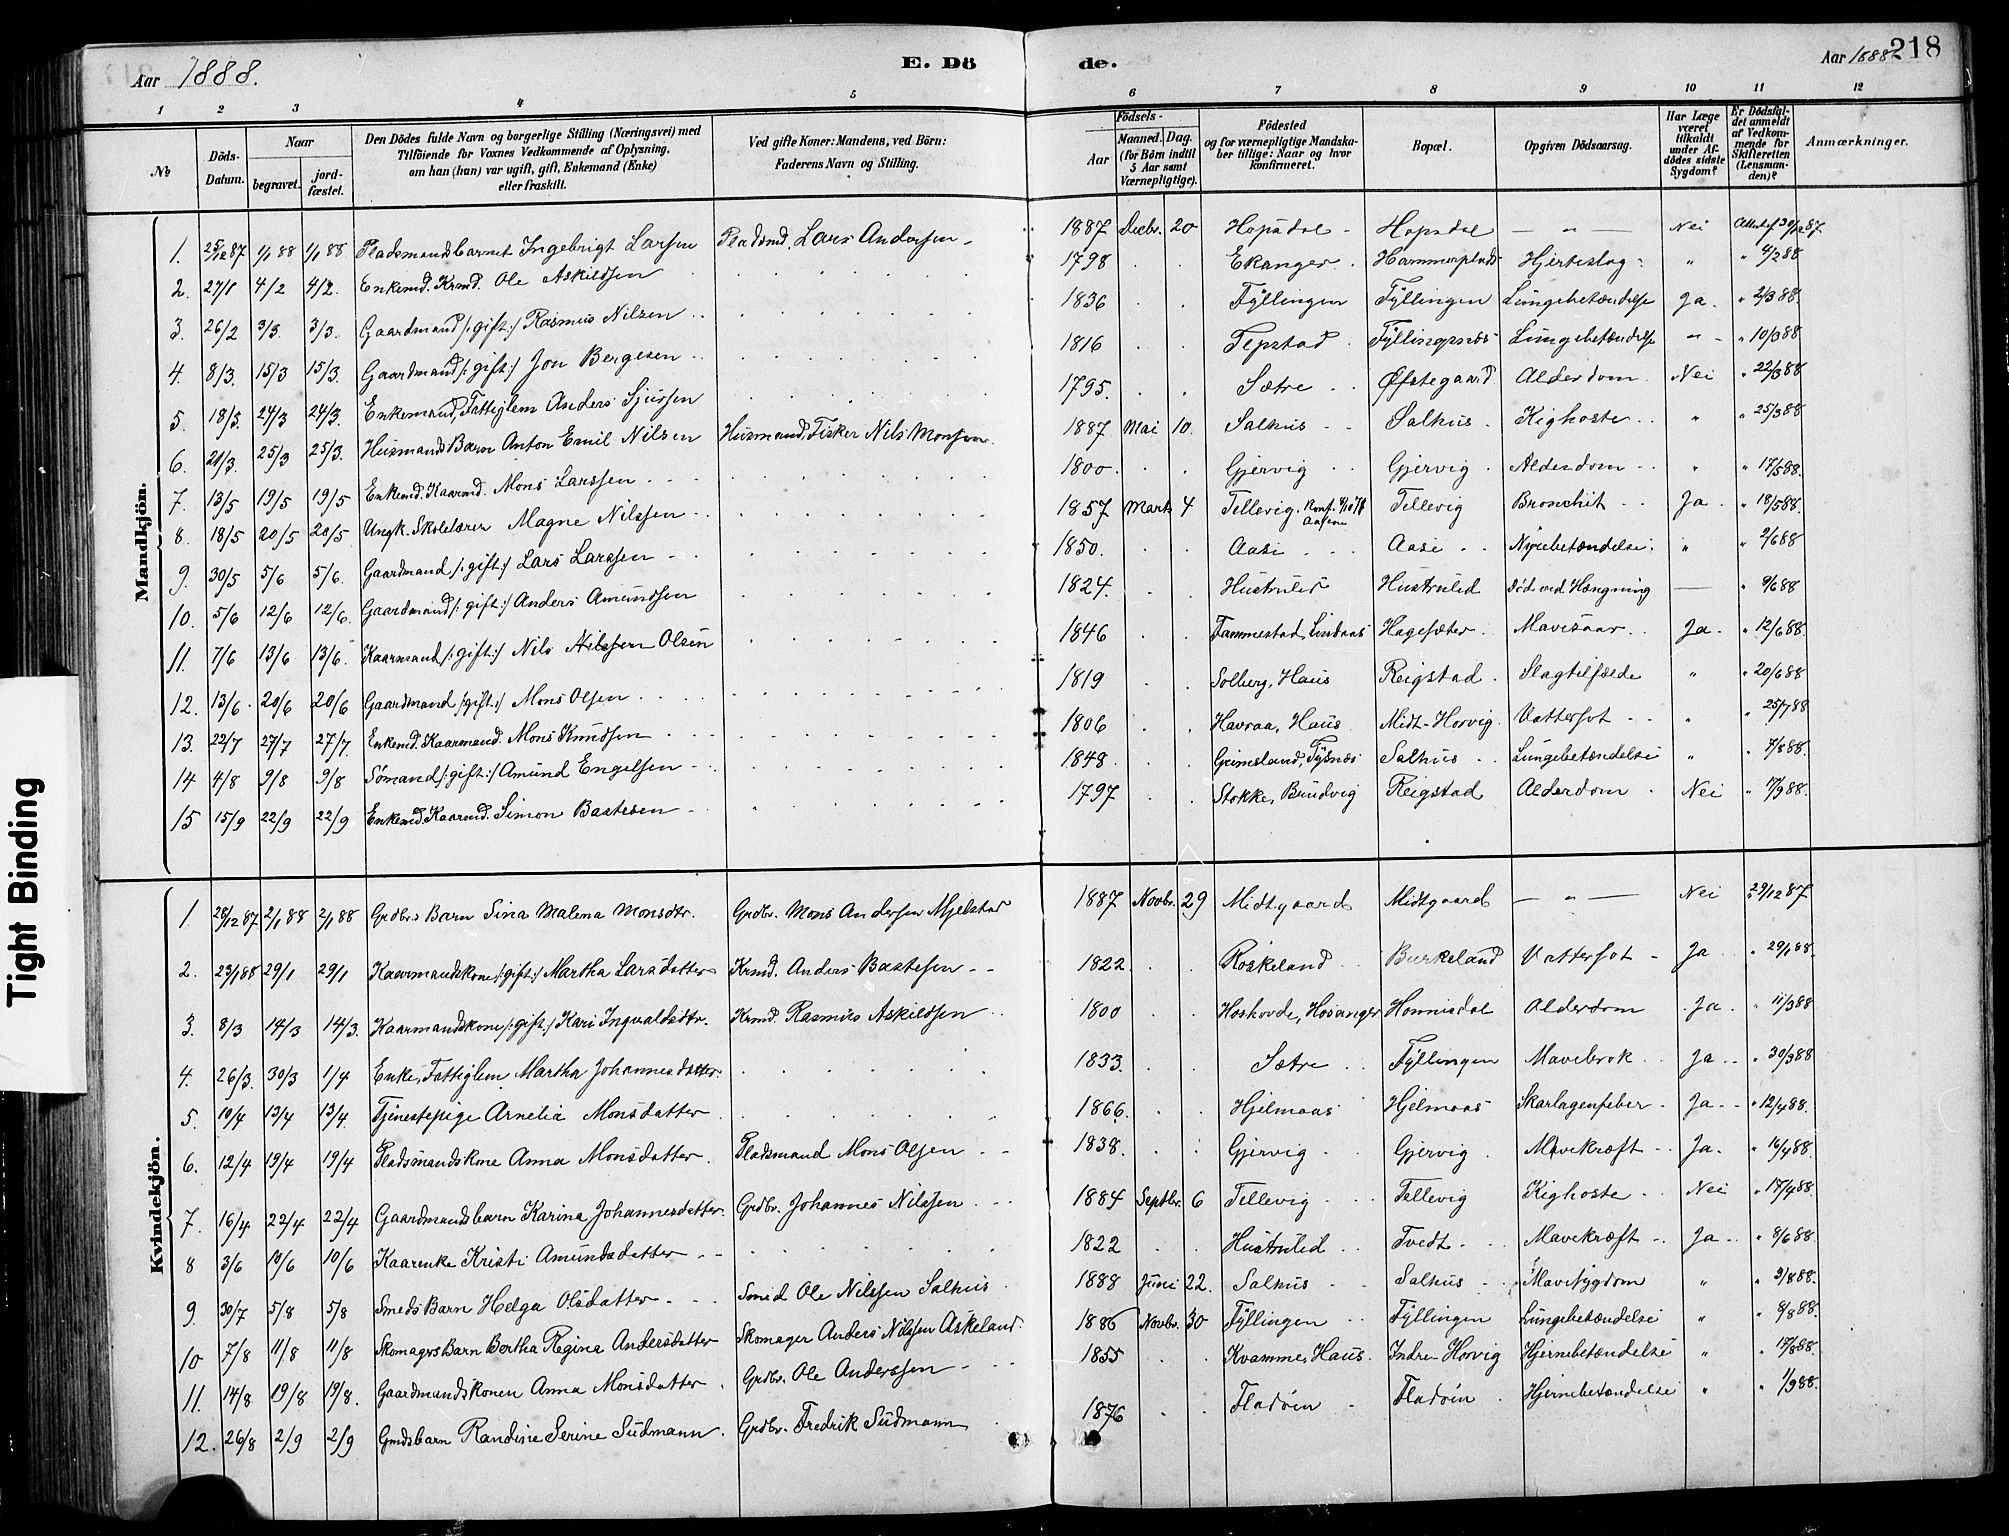 Aar 1888.
E. Dö
de.
Aar 1888
218
1 2 3 4 5 6 7 8 9 10 11 12
№
Döds-Datum.
Naar
begravet.
jord-fæstet.
Den Dödes fulde Navn og borgerlige Stilling (Næringsvei) med
Tilföiende for Voxnes Vedkommende af Oplysning,
om han (hun) var ugift, gift, Enkemand (Enke)
eller fraskilt.
Ved gifte Koner: Mandens, ved Börn:
Faderens Navn og Stilling.
Födsels-
Aar
Maaned. Dag.
(for Börn indtil
5 Aar samt
Værnepligtige).
Födested
og for værnepligtige Mandska-
ber tillige: Naar og hvor
konfirmeret.
Bopæl.
Opgiven Dödsaarsag.
Har Læge
været
tilkaldt
under Af-
dödes sidste
Sygdom?
Er Dödsfal-
det anmeldt
af Vedkom-
mende for
Skifteretten
(Lensman-
den)?
Anmærkninger.
Mandkjön.
1. 25/12 87 1/1 88 1/1 88 Pladsmandsbarnet Ingebrigt Larsen Pladsmd. Lars Andersen 1887 Decbr. 20 Hopsdal Hopsdal — " — Nei 30/12 87
2. 27/1 4/2 4/2. Enkemd. Krmd. Ole Askildsen 1798 Ekanger Hammerplads Hjerteslag " " 4/2 88
3. 26/2 3/3 3/3. Gaardmand /: gift :/ Rasmus Nilsen 1836 Fyllingen Fyllingen Lungebetændelse Ja. " 2/3 88.
4. 8/3. 15/3 15/3. Gaardmand /: gift :/ Jon Bergesen 1816 Tepstad Fyllingsnæs Lungebetændelse " " 10/3 88
5. 18/3. 24/3 24/3. Enkemand, Fattiglem Anders Sjursen 1795. Sætre Øfstegaard Alderdom. Nei " 22/3 88
6. 21/3. 25/3 25/3. Husmands Barn Anton Emil Nilsen Husmand, Fisker Nils Monsen. 1887 Mai 10. Salhus Salhus Kighoste " " 25/3 88
7. 13/5 19/5 19/5 Enkemd. Kaarmd. Mons Larssen 1800. Gjervig Gjervig Alderdom " " 17/5 88.
8. 18/5 20/5 20/5. Ungk. Skolelærer Magne Nilssen 1857 Marts 4 Tellevig. Konf. Tellevig Bronchit Ja " 18/5 88.
9. 30/5 5/6 5/6. Gaardmand /: gift :/ Lars Larssen 1850. Aase Aase Nyrebetændelse " " 2/6 88
10. 5/6 12/6 12/6. Gaardmand /: gift :/ Anders Amundsen 1824. Hustruled Hustruled Død ved Hængning — " 9/6 88
11. 7/6 13/6 13/6. Kaarmand /: gift :/ Nils Nilssen Olsen 1846 Fammestad, Lindaas Hagesæter Mavesaar Ja. " 12/6 88.
12. 13/6. 20/6 20/6 Gaardmand /: gift :/ Mons Olsen 1819 Solberg, Haus Reigstad Slagtilfælde " " 20/6 88
13. 22/7 27/7 27/7. Enkemd. Kaarmand. Mons Knudsen 1806 Havraa, Haus Midt-Horvig. Vattersot " " 25/7 88
14 4/8 9/8 9/8 Sømand /: gift :/ Amund Engelsen 1848. Grimsland, Tysnæs Salhus Lungebetændelse " " 7/8 88.
15 15/9 22/9 22/9 Enkemd. Kaarmd. Simon Bastesen 1797 Stokke, Bruvig Reigstad Alderdom Nei " 17/9 88.
Kvindekjön.
1. 28/12 87 2/1 88 2/1 88 Grdbr.s Barn Sina Malena Monsdtr. Grdbr. Mons Andersen Mjelstad 1887 Novbr. 29 Midtgaard Midtgaard — " — Nei 29/12 87
2. 23/1 88 29/1 29/1 Kaarmandskone /: gift :/ Martha Larsdatter Krmd. Anders Bastesen 1822 Røskeland Burkeland Vattersot Ja " 29/1 88.
3. 8/3 14/3 14/3. Kaarmandskone /: gift :/ Kari Ingvaldsdtr. Krmd. Rasmus Askildsen 1800 Hoshovde, Hosanger Honnisdal Alderdom Ja. " 11/3 88
4. 26/3. 30/3 1/4 Enke, Fattiglem Martha Johannesdatter. 1833. Sætre Fyllingen Mavebrok Ja " 30/3 88
5. 10/4 13/4 13/4 Tjenestepige Arnelia Monsdatter 1866. Hjelmaas Hjelmaas Skarlagensfeber Ja " 12/4 88.
6. 12/4 19/4 19/4 Pladsmandskone Anna Monsdatter. Pladsmand Mons Olsen 1838. Gjervig Gjervig Mavekræft Ja. " 16/4 88.
7. 16/4 22/4 22/4 Gaardmandsbarn Karina Johannesdatter. Grdbr. Johannes Nilssen 1884 Septbr. 6 Tellevig Tellevig Kighoste Nei " 18/4 88.
8 3/6 10/6 10/6 Kaarenke Kristi Amundsdatter 1822 Hustruled Tvedt Mavekræft Ja " 8/6 88
9 30/7 5/8 5/8 Smeds Barn Helga Olsdatter Smed Ole Nilssen Salhus 1888 Juni 22. Salhus Salhus Mavesygdom " " 3/8 88.
10 7/8 11/8 11/8 Skomagers Barn Bertha Regina Andersdatter Skomager Anders Nilssen Askeland 1886 Novbr. 30 Fyllingen Fyllingen Lungebetændelse " " 8/8 88.
11. 14/8 19/8 19/8. Gaardmandskonen Anna Monsdatter Grdbr. Ole Anderssen 1855 Kvamme, Haus Indre-Horvig Hjernebetændelse " " 17/8 88.
12. 26/8 2/9 2/9 Grdsbarn Randine Serine Sudmann. Grdbr. Fredrik Sudmann 1876 Fladøen Fladøen Hjernebetændelse " " 1/9 88.
Tight Binding